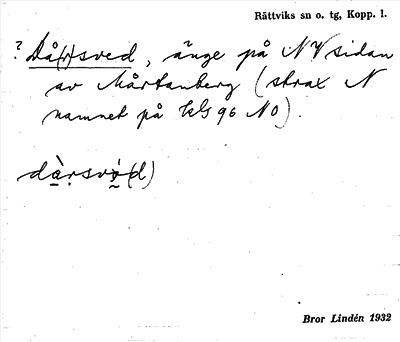 Rättviks sn o. tg, Kopp. l.
? Då(r)sved, änge på NV sidan
av Mårtanberg (strax N
namnet på KlG 96 NO).
dà̱ṛsvǫ́(d)
Bror Lindén 1932